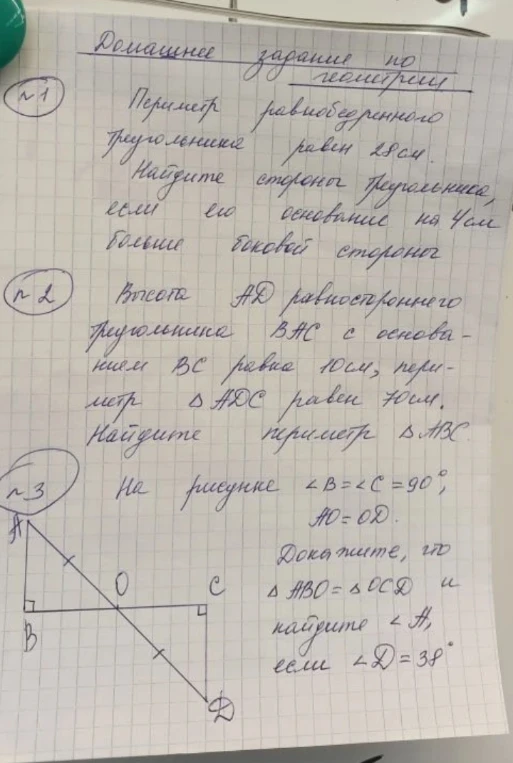 Домашнее задание по
геометрии
№1
Периметр равнобедренного
треугольника равен 28см.
Найдите стороны треугольника,
если его основание на 4см
больше боковой стороны
№2
Высота AD равностороннего
треугольника BAC с основа-
нием BC равна 10см, пери-
метр △ADC равен 70см.
Найдите периметр △ABC.
№3
На рисунке ∠B=∠C=90°,
AO=OD.
Докажите, что
△ABO=△OCD и
найдите ∠A,
если ∠D=38°
A
O
C
B
D